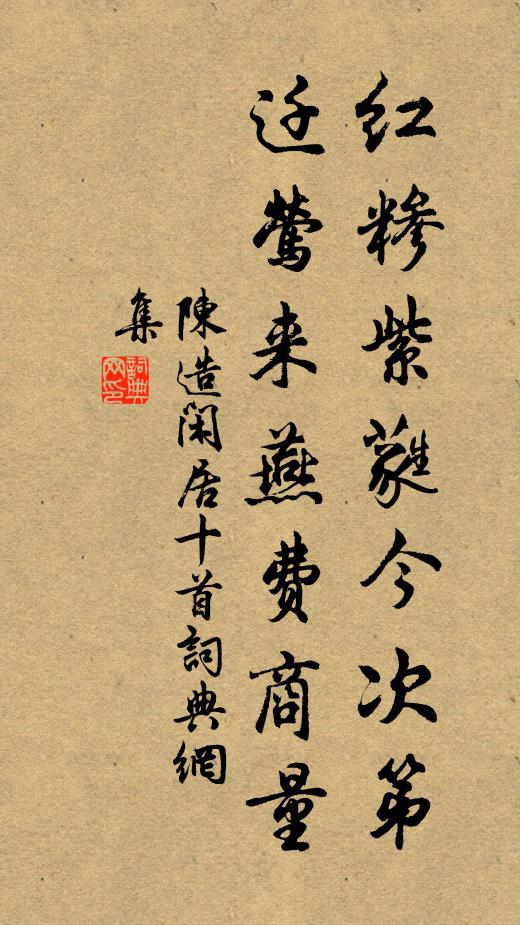 红糁紫蕤今次第
迁莺来燕费商量
陳造闲居十首詞典網
集
詞典
网印